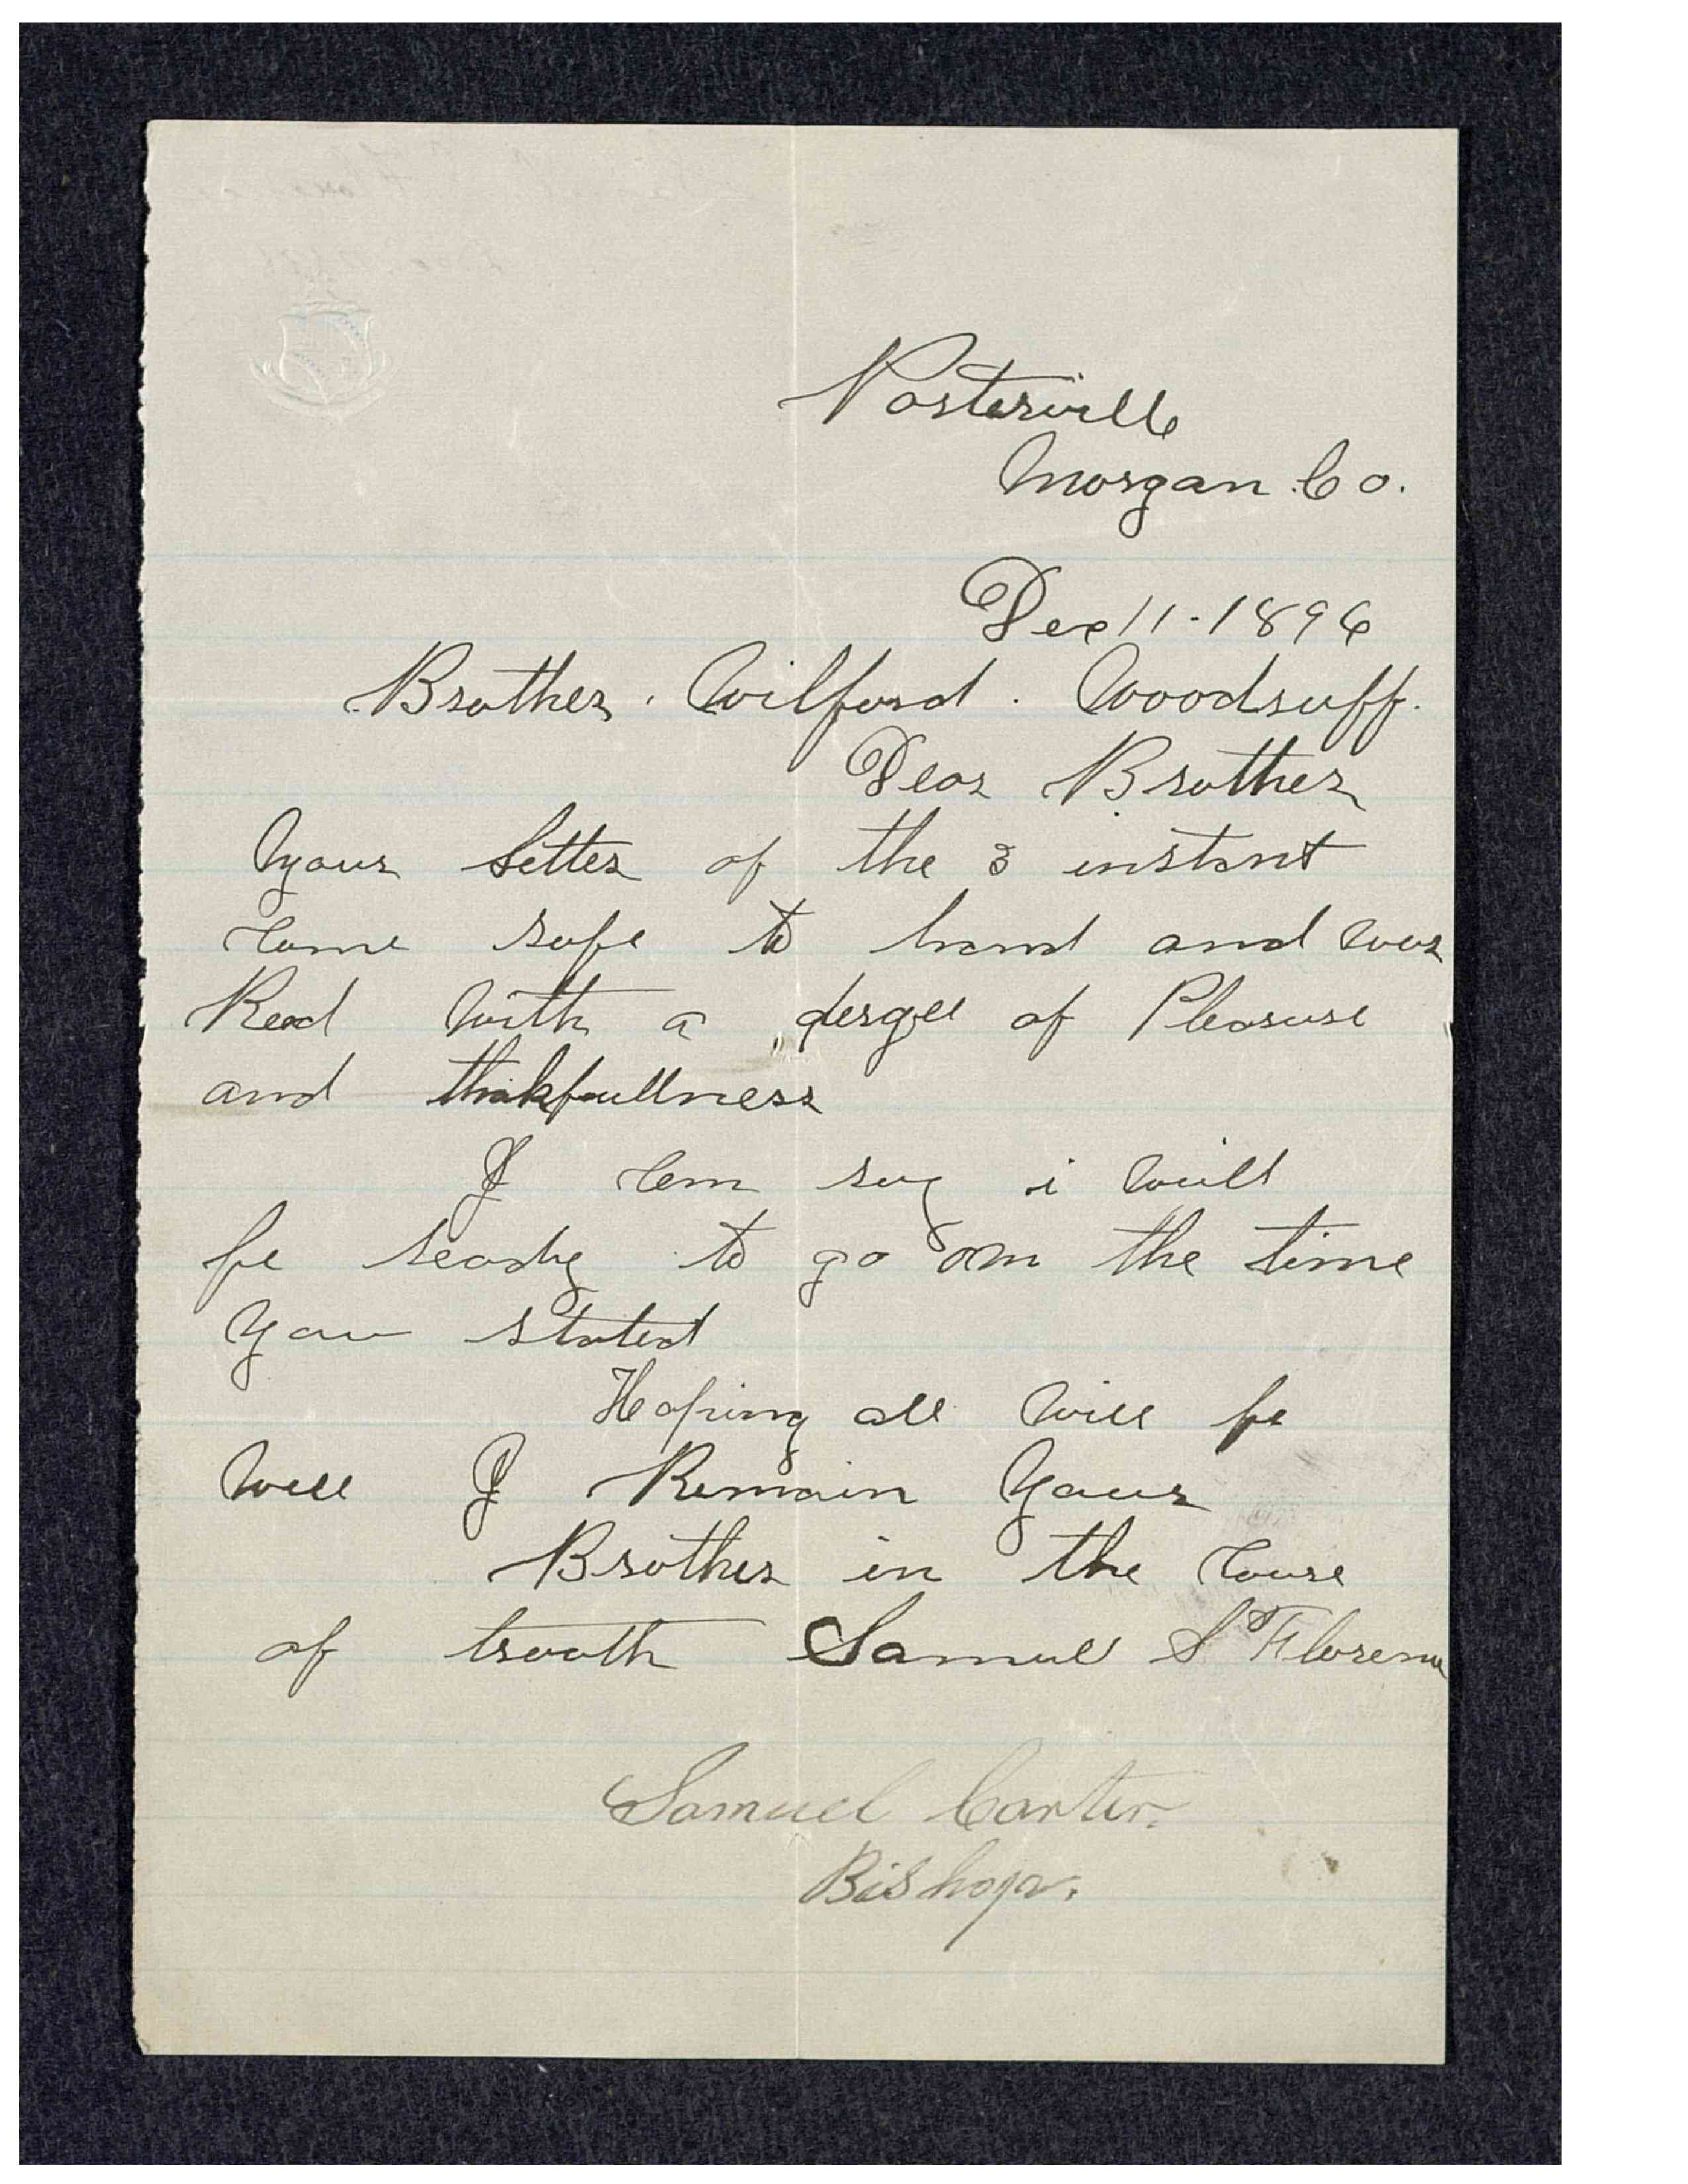 Porterville
Morgan Co.
Dec 11. 1896
Brother. Wilford. Woodruff.
Dear Brother
Your letter of the 3 instant
Came safe to hand and was
Read With a dergee of Pleasure
and thakfullness
I Can say i will
be ready to go on the time
You stated
Hoping all will be
Well I Remain Your
Brother in the Couse
of trooth Samuel S Florence
Samuel Carter.
Bishop.